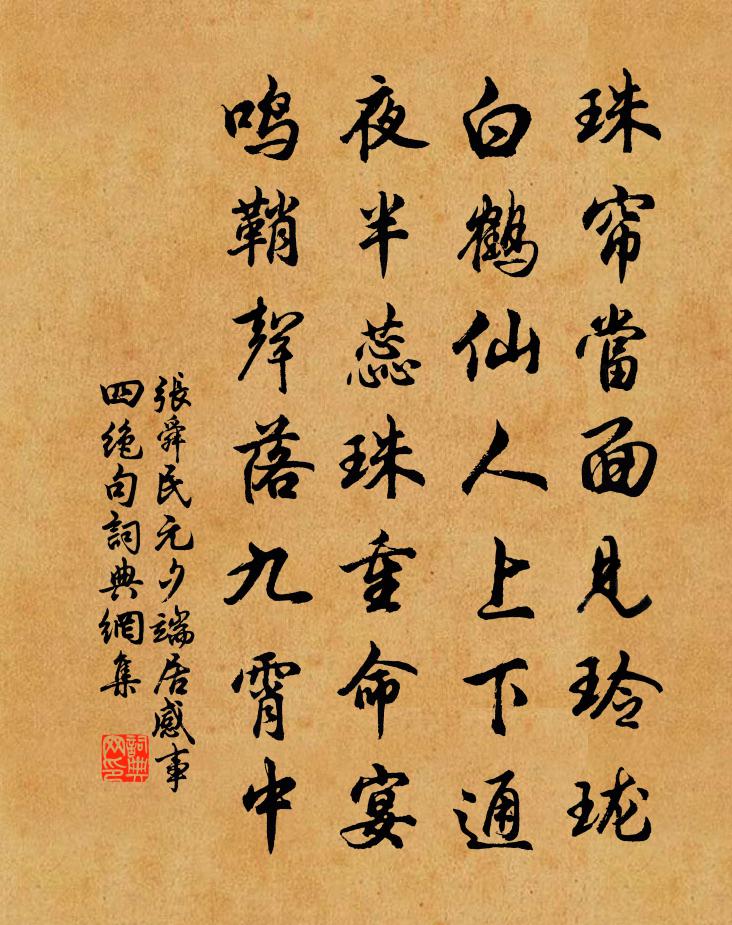 珠帘當面見玲珑
白鶴仙人上下通
夜半蕊珠重命宴
鳴鞘聲落九霄中
張舜民元夕端居感事
四绝句詞典網集
詞典
网印